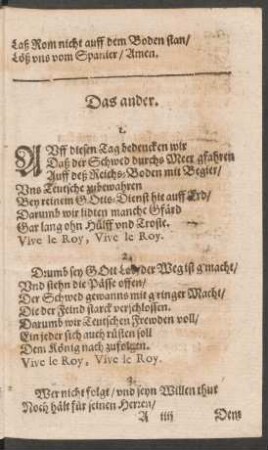 Laß Rom nicht auff dem Boden stan/
Löß vns vom Spanier/ Amen.
Das ander.
1.
AVff diesen Tag bedencken wir
Daß der Schwed durchs Meer gfahren
Auff deß Reichs-Boden mit Begier/
Vns Teutsche zubewahren
Bey reinem GOtts-Dienst hie auff Erd/
Darumb wir lidten manche Gfärd
Gar lang ohn Hülff vnd Troste.
Vive le Roy, Vive le Roy.
2.
Drumb sey GOtt Lob/ der Weg ist g'macht/
Vnd stehn die Pässe offen/
Der Schwed gewanns mit g'ringer Macht/
Die der Feind starck verschlossen.
Darumb wir Teutschen Frewden voll/
Ein jeder sich auch rüsten soll
Dem König nach zufolgen.
Vive le Roy, Vive le Roy.
3.
Wer nicht folgt/ vnd seyn Willen thut
Noch hält für seinen Herren/
A iiij Dem